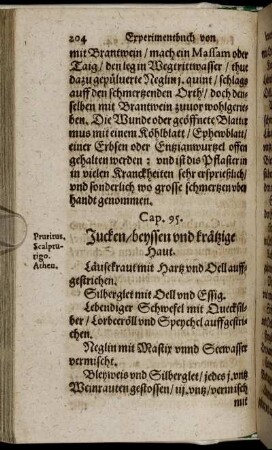 204 Experimentbuch von
mit Brantwein / mach ein Massam oder
Taig / den leg in Wegtrittwasser / thut
dazu gepüluerte Neglin j. quint / schlags
auff den schmertzenden Orth / doch den-
selben mit Brantwein zuuor wohlgerie-
ben. Die Wunde oder geöffnete Blatter
mus mit einem Köhlblatt / Ephewblatt /
einer Erbsen oder Entzianwurtzel offen
gehalten werden : vnd ist dis Pflaster in
in vielen Kranckheiten sehr ersprießlich /
vnd sonderlich wo grosse schmertzen vber
handt genommen.
Cap. 95.
Pruritus.
Scalptu-
rigo.
Athen.
Jucken / beyssen vnd krätzige
Haut.
Läusekraut mit Hartz vnd Oell auff-
gestrichen.
Silberglet mit Oell vnd Essig.
Lebendiger Schwefel mit Quecksil-
ber / Lorbeeröll vnd Speychel auffgestri-
chen.
Neglin mit Mastix vnnd Seewasser
vermischt.
Bleyweis vnd Silberglet / jedes j. vntz
Weinrauten gestossen / iij. vntz / vermisch
mit